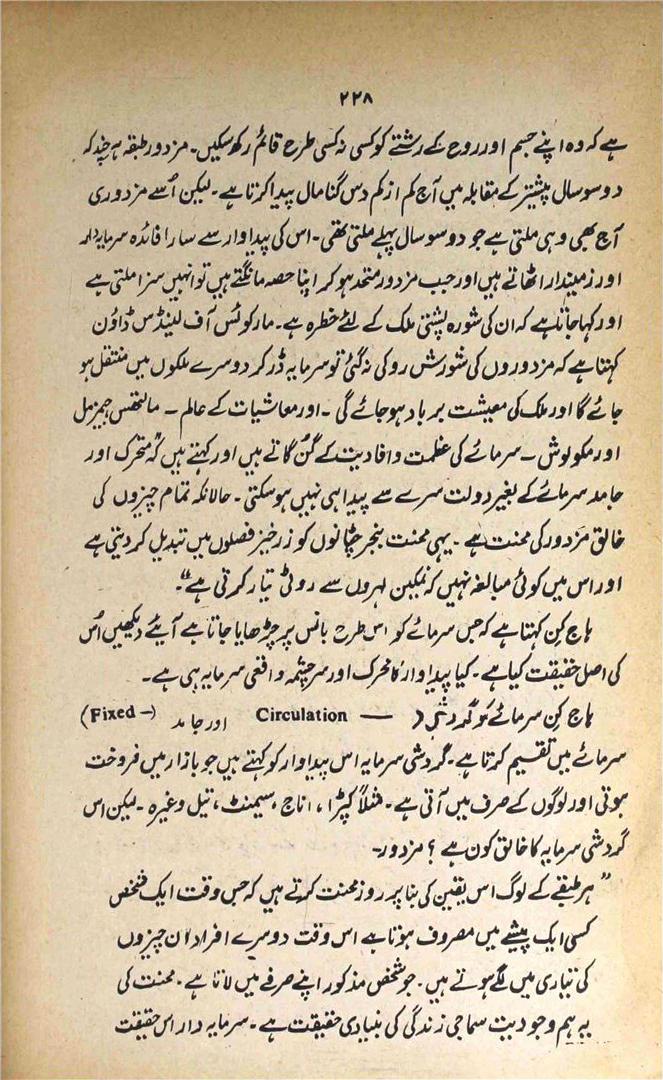 ۲۲۸
ہے کہ وہ اپنے جسم اور روح کے رشتے کو کسی نہ کسی طرح قائم رکھ سکیں۔ مزدور طبقہ ہرچند کہ
دو سو سال پیشتر کے مقابلہ میں آج کم از کم دس گنا مال پیدا کرتا ہے۔ لیکن اُسے مزدوری
آج بھی وہی ملتی ہے جو دو سو سال پہلے ملتی تھی۔ اس کی پیداوار سے سارا فائدہ سرمایہ دار
اور زمیندار اٹھاتے ہیں اور جب مزدور متحد ہو کر اپنا حصہ مانگتے ہیں تو انہیں سزا ملتی ہے
اور کہا جاتا ہے کہ ان کی شورہ پشتی ملک کے لئے خطرہ ہے۔ مارکوئس آف لینڈس ڈاؤن
کہتا ہے کہ مزدوروں کی شورش روکی نہ گئی تو سرمایہ ڈر کر دوسرے ملکوں میں منتقل ہو
جائے گا اور ملک کی معیشت برباد ہو جائے گی ۔ اور معاشیات کے عالم ۔ مالتھس جیمزمل
اور مکولوش ۔ سرمائے کی عظمت و افادیت کے گُن گاتے ہیں اور کہتے ہیں کہ "متحرک اور
جامد سرمائے کے بغیر دولت سرے سے پیدا ہی نہیں ہو سکتی۔ حالانکہ تمام چیزوں کی
خالق مزدور کی محنت ہے ۔ یہی محنت بنجر چٹانوں کو زرخیز فصلوں میں تبدیل کر دیتی ہے
اور اس میں کوئی مبالغہ نہیں کہ نمکین لہروں سے روٹی تیار کرتی ہے"۔
ہاج کِن کہتا ہے کہ جس سرمائے کو اس طرح بانس پر چڑھایا جاتا ہے آیئے دیکھیں اُس
کی اصل حقیقت کیا ہے۔ کیا پیداوار کا محرک اور سرچشمہ واقعی سرمایہ ہی ہے۔
ہاج کِن سرمائے کو گردشی ( — Circulation اور جامد (Fixed —)
سرمائے میں تقسیم کرتا ہے۔ گردشی سرمایہ اس پیداوار کو کہتے ہیں جو بازار میں فروخت
ہوتی اور لوگوں کے صرف میں آتی ہے۔ مثلاً کپڑا ، اناج ، سیمنٹ، تیل وغیرہ ۔ لیکن اس
گردشی سرمایہ کا خالق کون ہے ؟ مزدور۔
"ہر طبقے کے لوگ اس یقین کی بنا پر روز محنت کرتے ہیں کہ جس وقت ایک شخص
کسی ایک پیشے میں مصروف ہوتا ہے اس وقت دوسرے افراد ان چیزوں
کی تیاری میں لگے ہوتے ہیں ۔ جو شخص مذکور اپنے صرفے میں لاتا ہے ۔ محنت کی
یہ ہم وجودیت سماجی زندگی کی بنیادی حقیقت ہے ۔ سرمایہ دار اس حقیقت